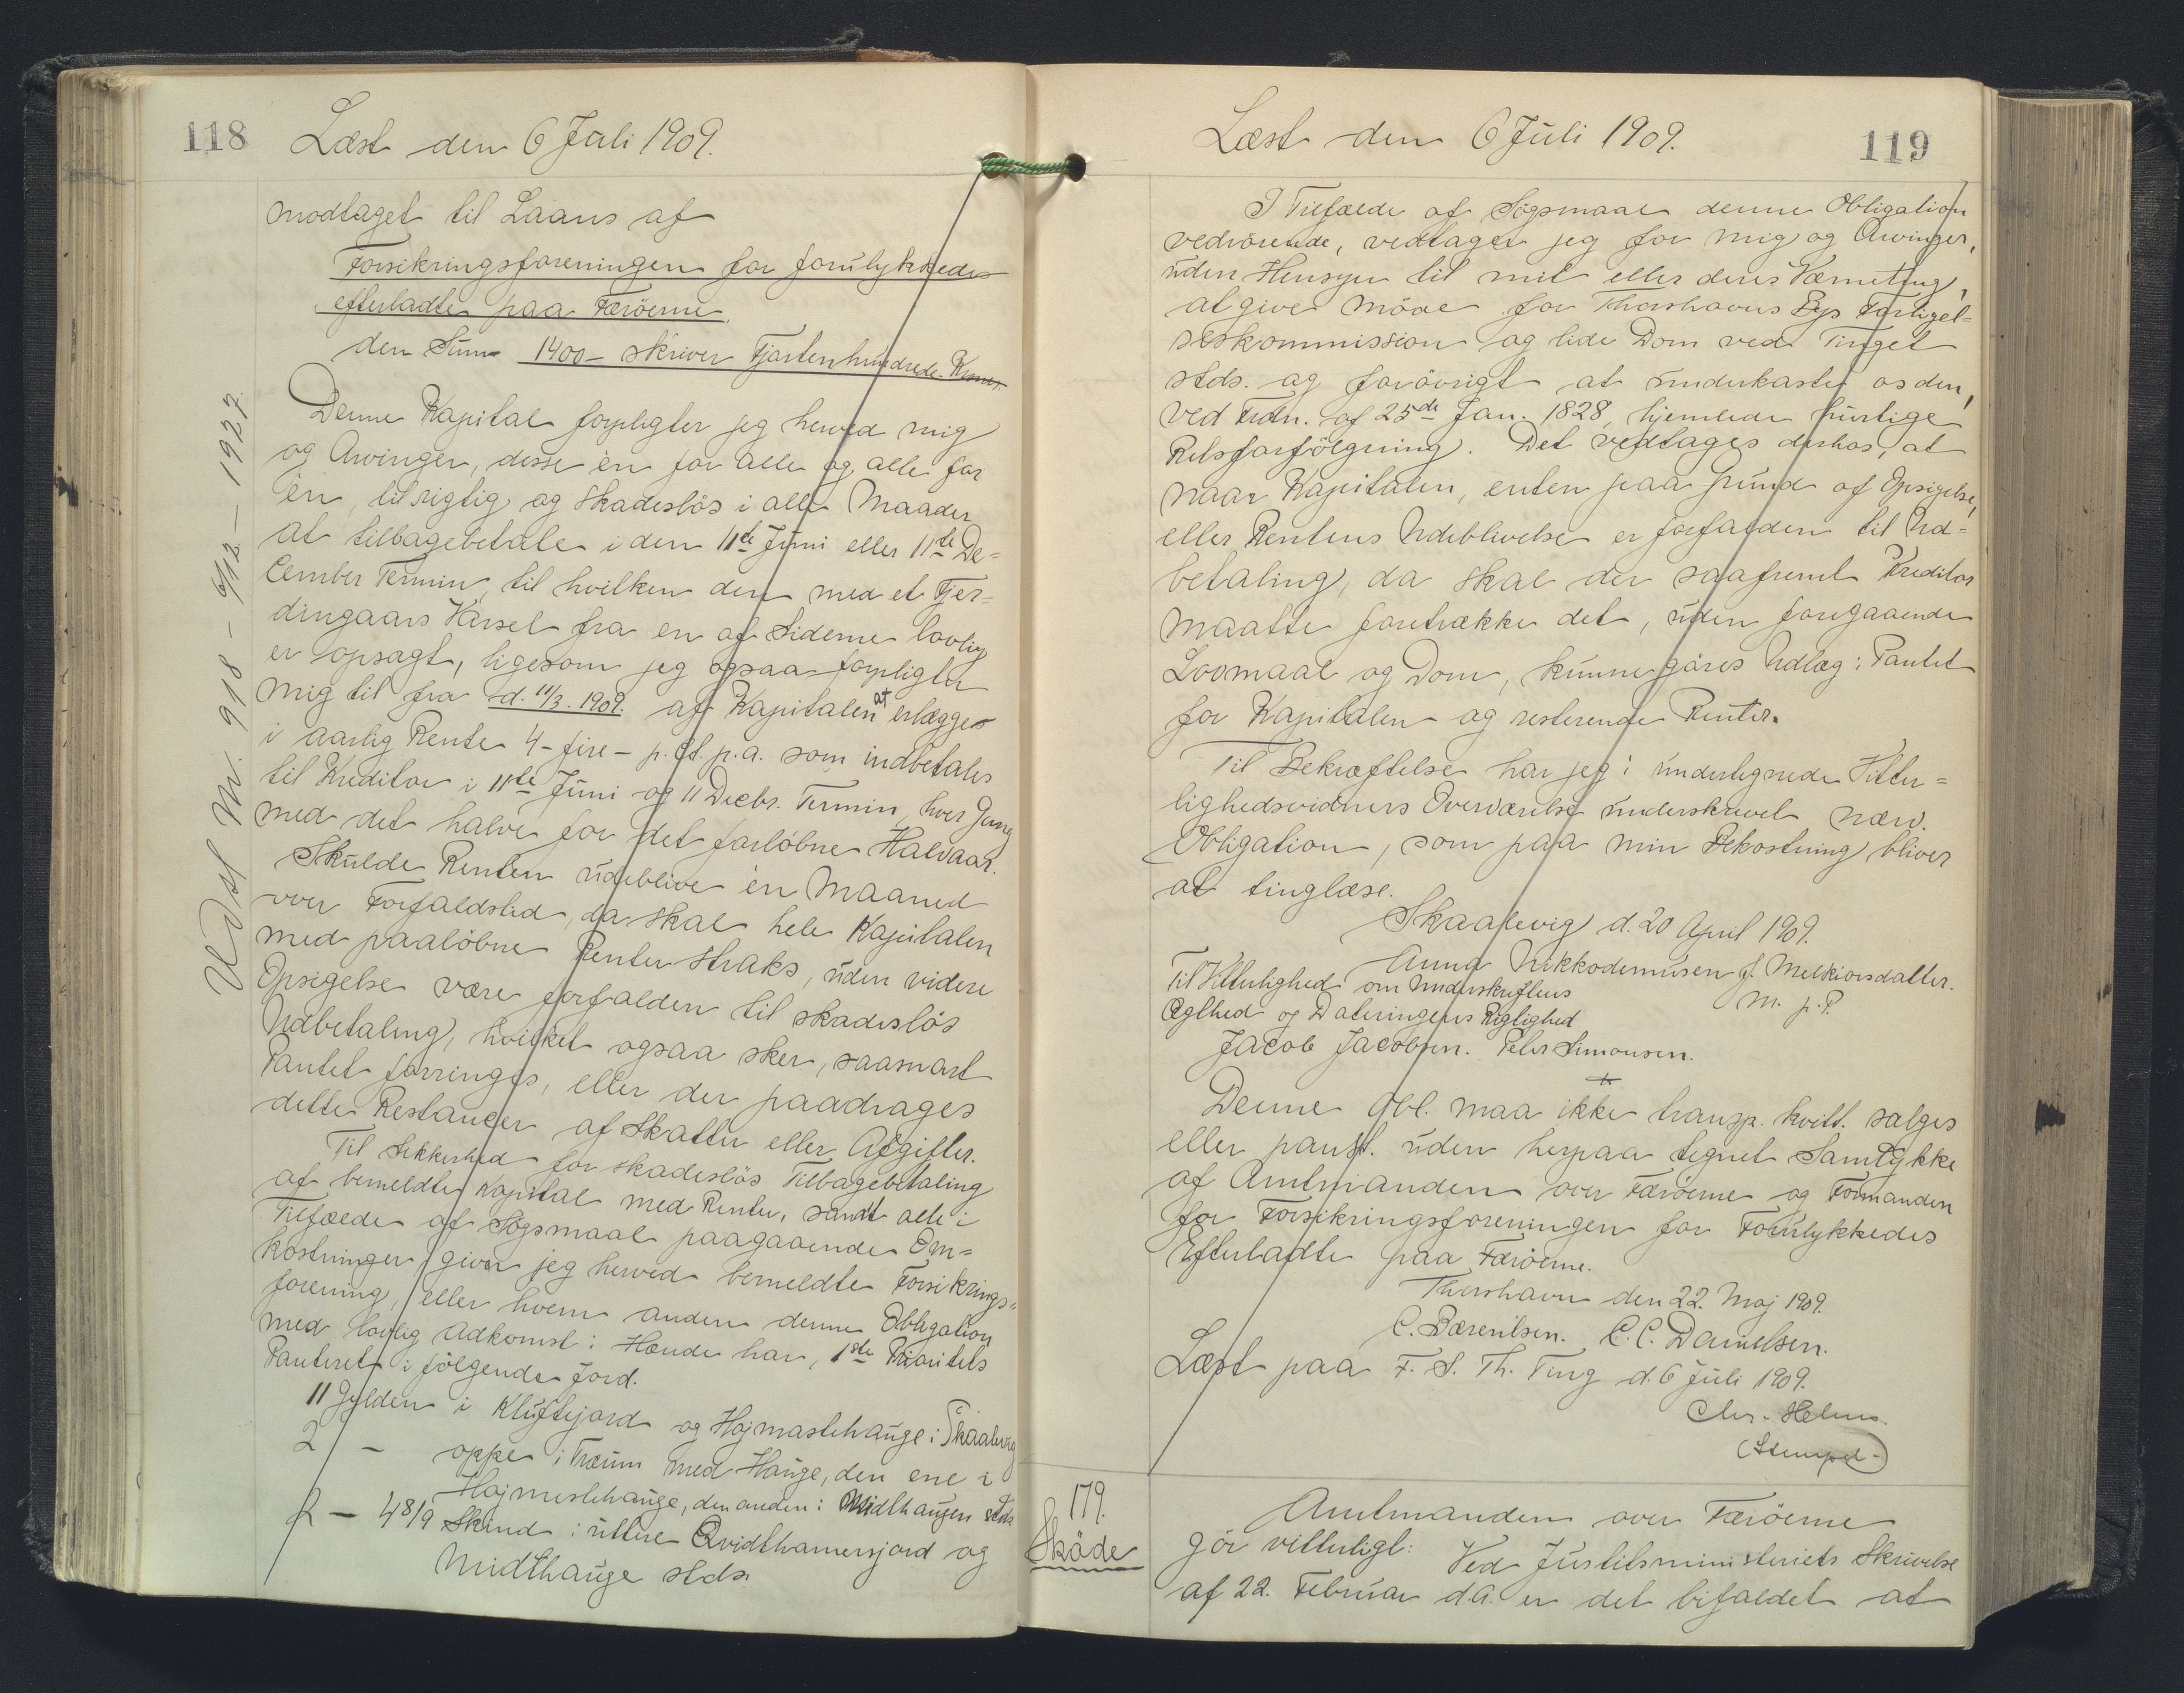 118
Læst den 6 Juli 1909.
modtaget til Laans af
Forsikringsforeningen for forulykkedes
efterladte paa Færöerne
den Sum 1400 - skriver Fjortenhundrede - Kroner.
Denne Kapital forpligter jeg herved mig
og Arvinger, desse én for alle og alle for
én, til rigtig og skadeslös i alle Maader
at tilbagebetale i den 11te Juni eller 11te De=
cember Termin, til hvilken den med et Fjer=
dingaars Varsel fra en af Siderne lovlig
er opsagt, ligesom jeg ogsaa forpligter
mig til fra d. 11/3. 1909. af Kapitalen at erlægges
i aarlig Rente 4 - fire - p. Ct. p.a. som indbetales
til Kreditor i 11te Juni og 11 Decbr. Termin, hver Gang
med det halve for det forløbne Halvaar.
Skulde Renten udeblive én Maaned
over Forfaldstid, da skal hele Kapitalen
med paalöbne Renter straks, uden videre
Opsigelse være forfalden til skadeslös
Udbetaling, hvilket ogsaa sker, saasnart
Pantet forringes, eller der paadrages
dette Restancer af Skatter eller Afgifter.
Til Sikkerhed for skadeslös Tilbagebetaling
af bemeldte Kapital med Renter, samt alle i
Tilfælde af Sögsmaal paagaaende Om=
kostninger giver jeg herved bemeldte Forsikrings=
forening, eller hvem anden denne Obligation
med lovlig Adkomst i Hænde har, 1ste Prioritets
Panteret i fölgende Jord.
11 Gylden i Kluftejord og Hojmastehauge i Skaalevig
2 - oppe i Træum med Hauge, den ene i
Hojmestehauge, den anden i Midthaugen stds.
2 - 4 8/9 Skind i uttere Qvidthamersjord og
Midthauge stds.
Udst Nr. 918 - 9/12 - 1927.
Læst den 6 Juli 1909.
119
I Tilfælde af Sögsmaal denne Obligation
vedrörende, vedtager jeg for mig og Arvinger,
uden Hensyn til mit eller deres Værneting,
at give Möde for Thorshavns Bys Forligel=
seskommission og lide Dom ved Tinget
stds. og forövrigt at underkaste os den,
ved Frdn. af 25de Jan. 1828, hjemlede hurtige
Retsforfölgning. Det vedtages derhos, at
naar Kapitalen, enten paa Grund af Opsigelse,
eller Rentens Udeblivelse er forfalden til Ud=
betaling, da skal der saafremt Kreditor
maatte foretrække det, uden foregaaende
Lovmaal og Dom, kunne göres Udlæg i Pantet
for Kapitalen og resterende Renter.
Til Bekræftelse har jeg i undertegnede Vitter=
lighedsvidners Overværelse underskrevet nærv.
Obligation, som paa min Bekostning bliver
at tinglæse.
Skaalevig d. 20 April 1909.
Anna Nikkodemusen f. Melkiorsdatter.
m. p. P.
Til Vitterlighed om Underskriftens
Ægthed og Dateringens Rigtighed
Jacob Jacobsen. Peter Simonsen.
Denne Obl. maa ikke transp. kvitt. sælges
eller pants. uden herpaa tegnet Samtykke
af Amtmanden over Færöerne og Formanden
for Forsikringsforeningen for Forulykkedes
Efterladte paa Færöerne.
Thorshavn den 22. Maj 1909.
C. Bærentsen. C. C. Danielsen.
Læst paa F. S. Th. Ting d. 6 Juli 1909.
Chr. Helms.
(Stempel)
179.
Sköde
Amtmanden over Færöerne
gör vitterligt: Ved Justitsministeriets Skrivelse
af 22. Februar d.A. er det bifaldet at